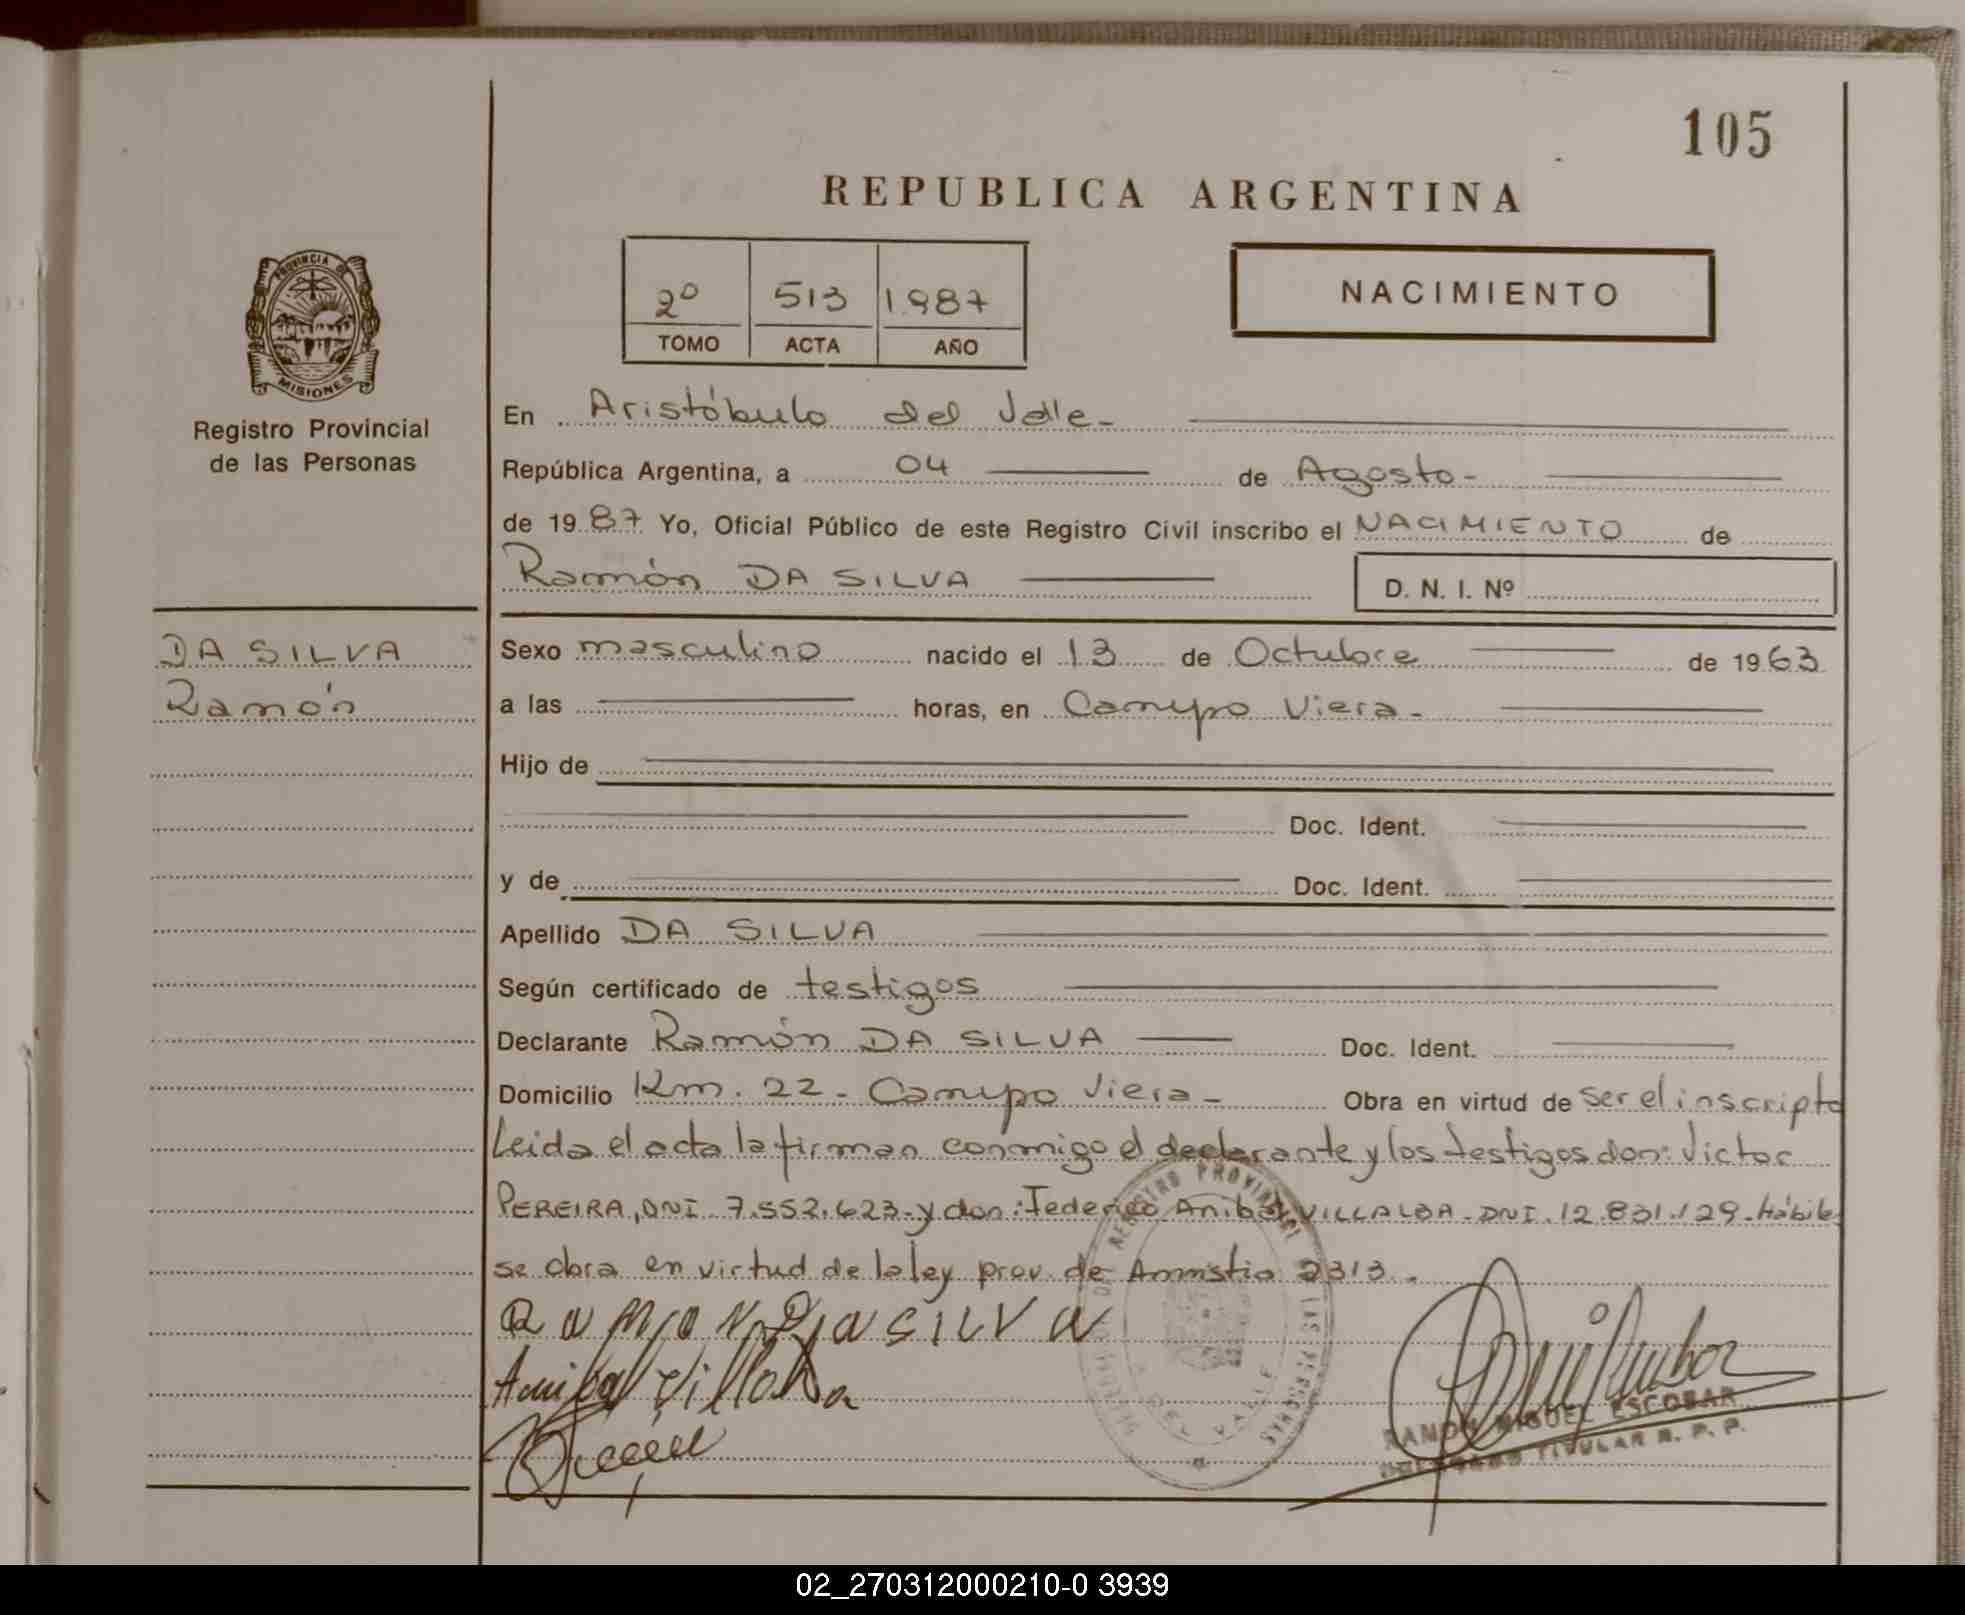 105
REPUBLICA ARGENTINA
2º 513 1.987
TOMO ACTA AÑO
NACIMIENTO
PROVINCIA DE
MISIONES
Registro Provincial
de las Personas
En Aristóbulo del Valle-
República Argentina, a 04 de Agosto-
de 1987 Yo, Oficial Público de este Registro Civil inscribo el NACIMIENTO de
Ramón DA SILVA D. N. I. Nº
DA SILVA
Ramón
Sexo masculino nacido el 13 de Octubre de 1963
a las horas, en Campo Viera-
Hijo de
Doc. Ident.
y de Doc. Ident.
Apellido DA SILVA
Según certificado de testigos
Declarante Ramón DA SILVA Doc. Ident.
Domicilio Km. 22- Campo Viera- Obra en virtud de ser el inscripto
Leida el acta la firman conmigo el declarante y los testigos don: Victor
PEREIRA, DNI 7.552.623- y don: Federico Anibal VILLALBA- DNI. 12.831.129- Hábiles
se obra en virtud de la ley prov. de Amnistia 2313.
RAMON DA SILVA
Anibal Villalba
REGISTRO PROVINCIAL DE LAS PERSONAS
DEL VALLE
RAMON MIGUEL ESCOBAR
DELEGADO TITULAR R. P. P.
02_270312000210-0 3939